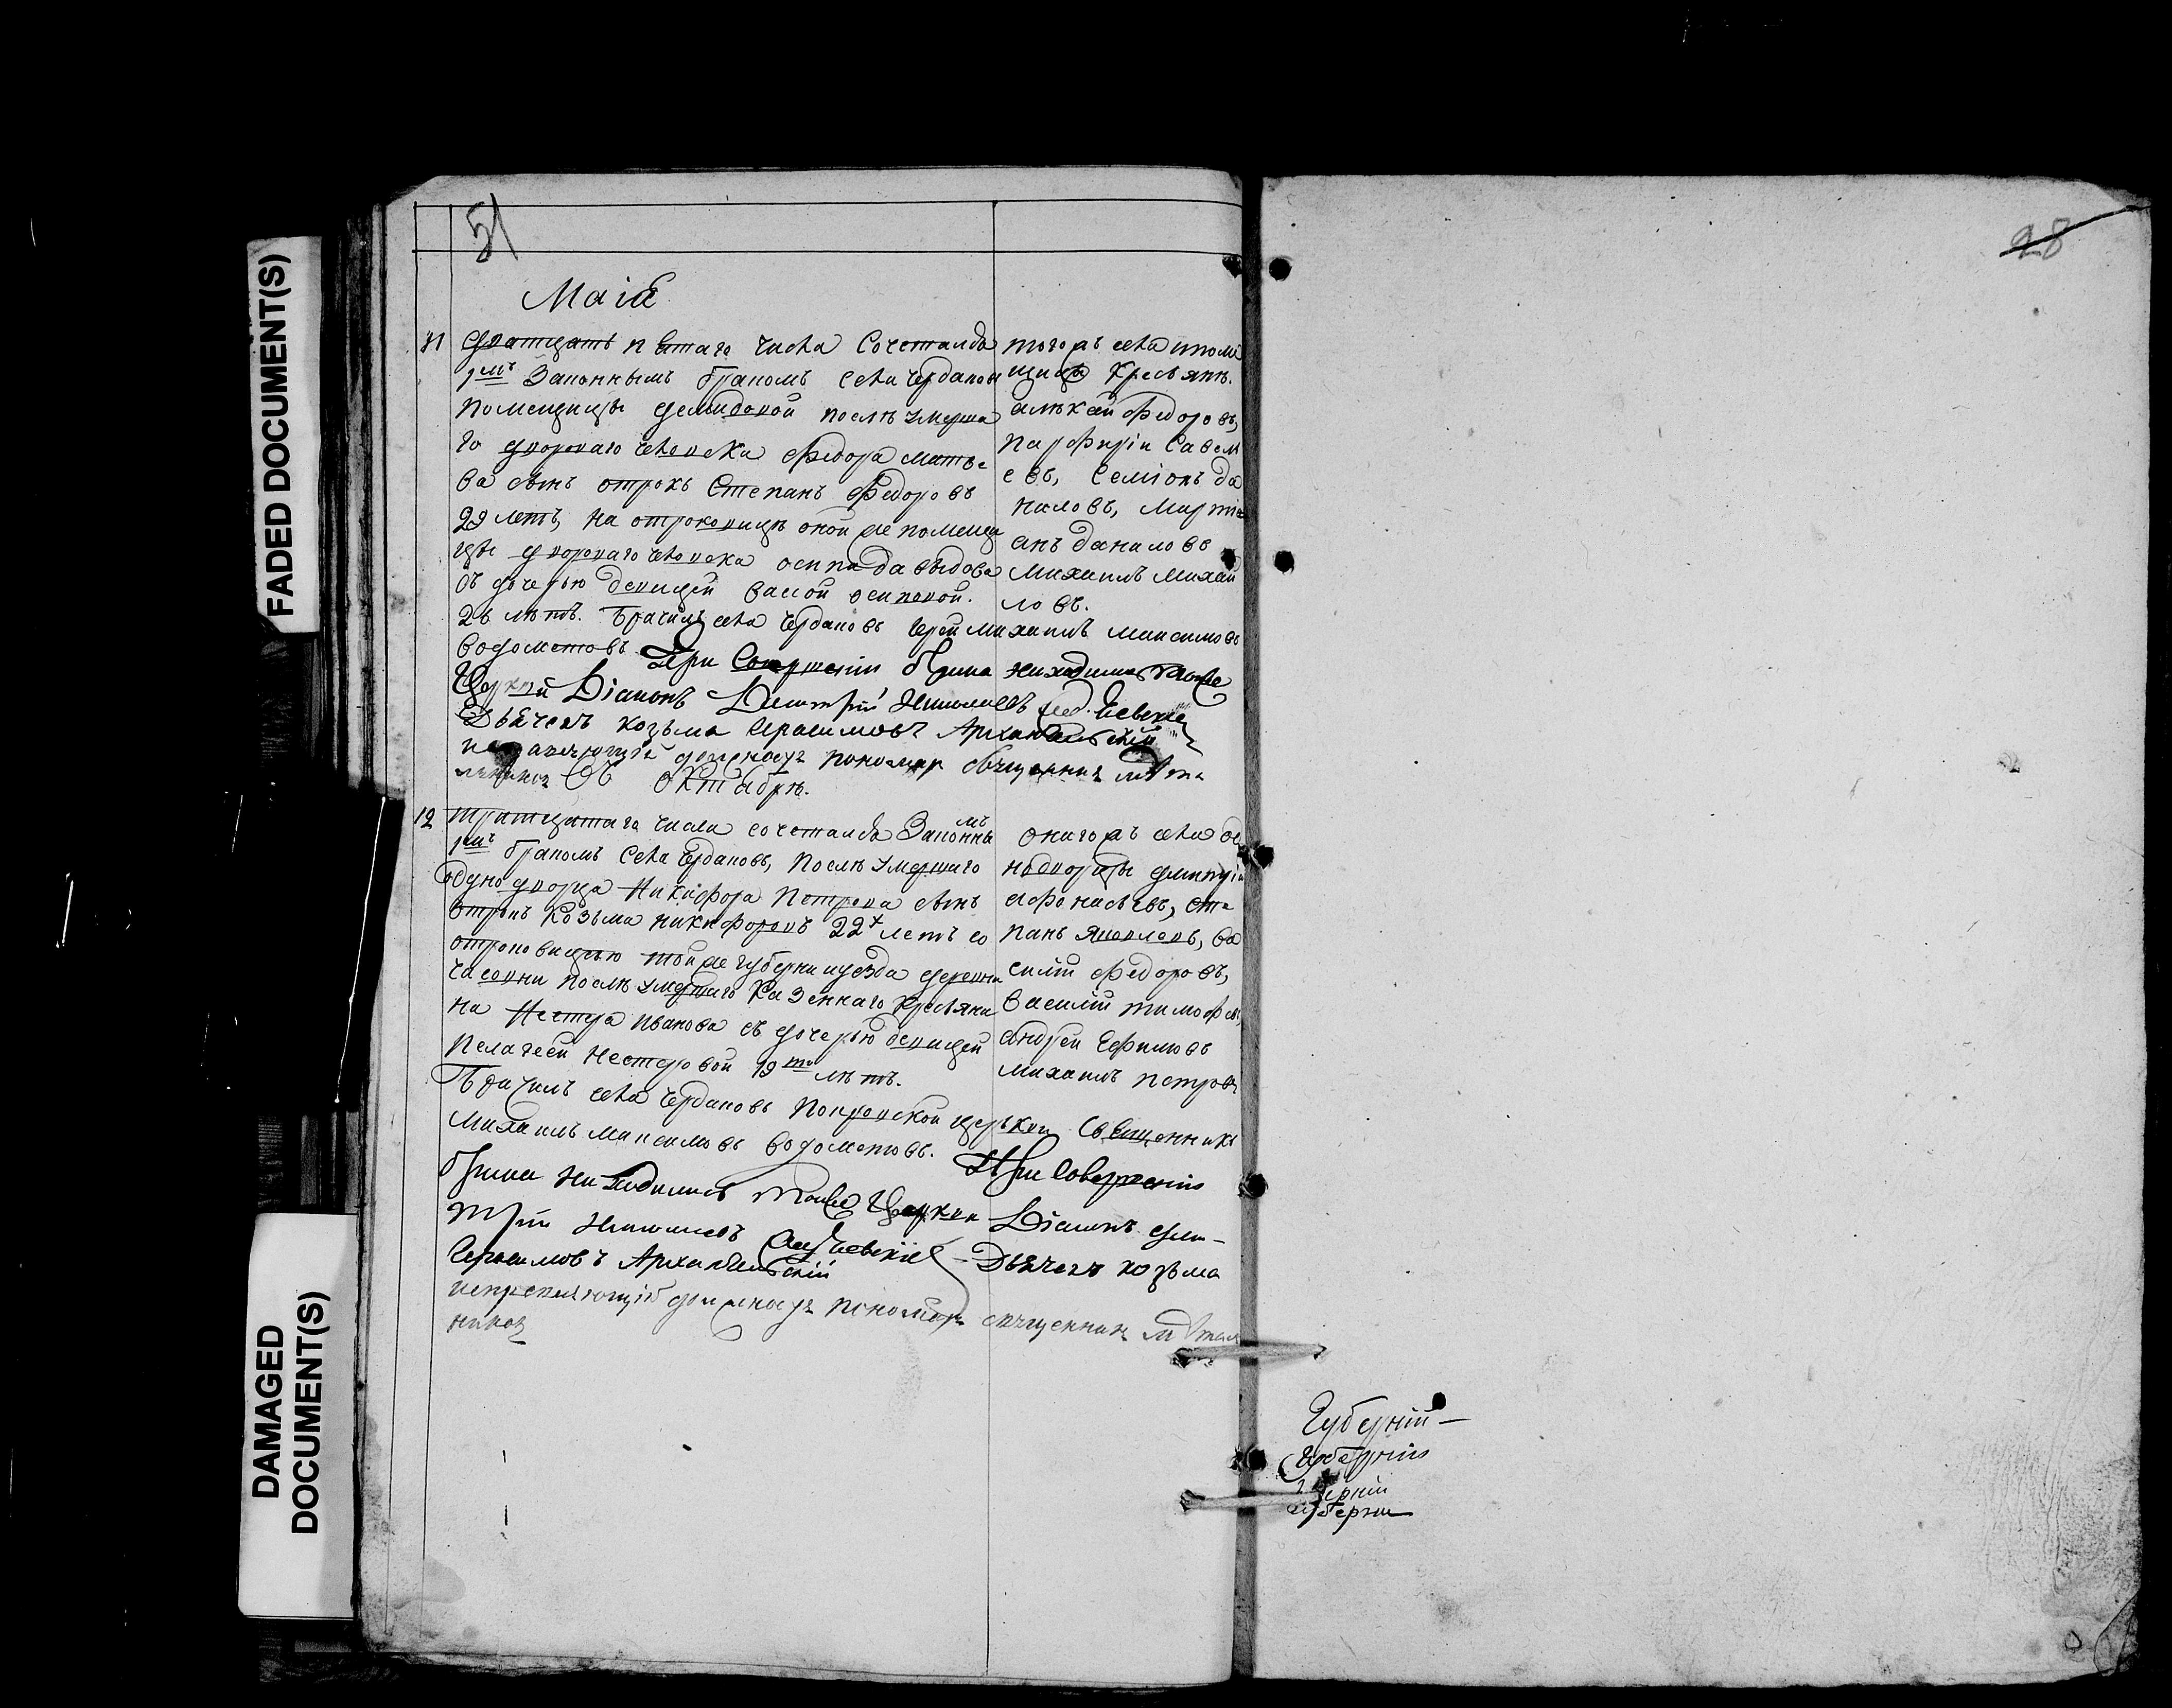 FADED DOCUMENT(S)
DAMAGED DOCUMENT(S)
51
28
Маіа
11
дватцать пятаго числа сочетался
1мъ Законнымъ бракомъ села Чердаковъ
помещицы демидовой послѣ умерша
го двороваго человека Федора матве
ва сынъ отрокъ Степанъ Федоровъ
22 летъ, на отроковицѣ оной же помещи
цы двороваго человека осипа давыдова
съ дочерью девицей васой осиповой.
26 лѣтъ. Брачилъ села Чердаковъ Іерей михаилъ максимовъ
водометовъ. При Совершеніи брака находились тойже
Церкви Діаконъ Димитрій Николаевъ
Дьячекъ козьма Герасимовъ Архангельскій
должность пономаря священникъ
того жъ села и поме
щицы Кресьяне.
алѣксѣй Федоровъ,
парфирій Савель
евъ, Семіонъ да
ниловъ, март
анъ даниловъ
михаилъ михай
ловъ.
октабря.
12
тритцатаго числа сочетался Законнымъ
1мъ бракомъ села Чердаковъ, послѣ умершаго
однодворца Никифора Петрова сынъ
отрокъ Козьма никифоровъ 22х летъ со
отроковицею той же губерни и уезда деревни
часовни послѣ умершаго Казеннаго кресьяни
на Нестера иванова съ дочерью девицей
пелагеей нестеровой 19ти лѣтъ.
Брачилъ села Чердаковъ Покровской церькви Священникъ
михаилъ максимовъ водометовъ. При Совершеніи
брака находились тойже Церкви Діаконъ Дми-
трій Николаевъ Дьячекъ козьма
Герасимовъ Архангельскій
исправляющій должность пономаря священникъ
онаго жъ села од
нодворцы дмитрій
афонасьевъ, сте
панъ яковлевъ, ва
силій Федоровъ,
василій тимофеевъ
андрей Ефимовъ
михаилъ петровъ
Губерній
Губерніи
губерни